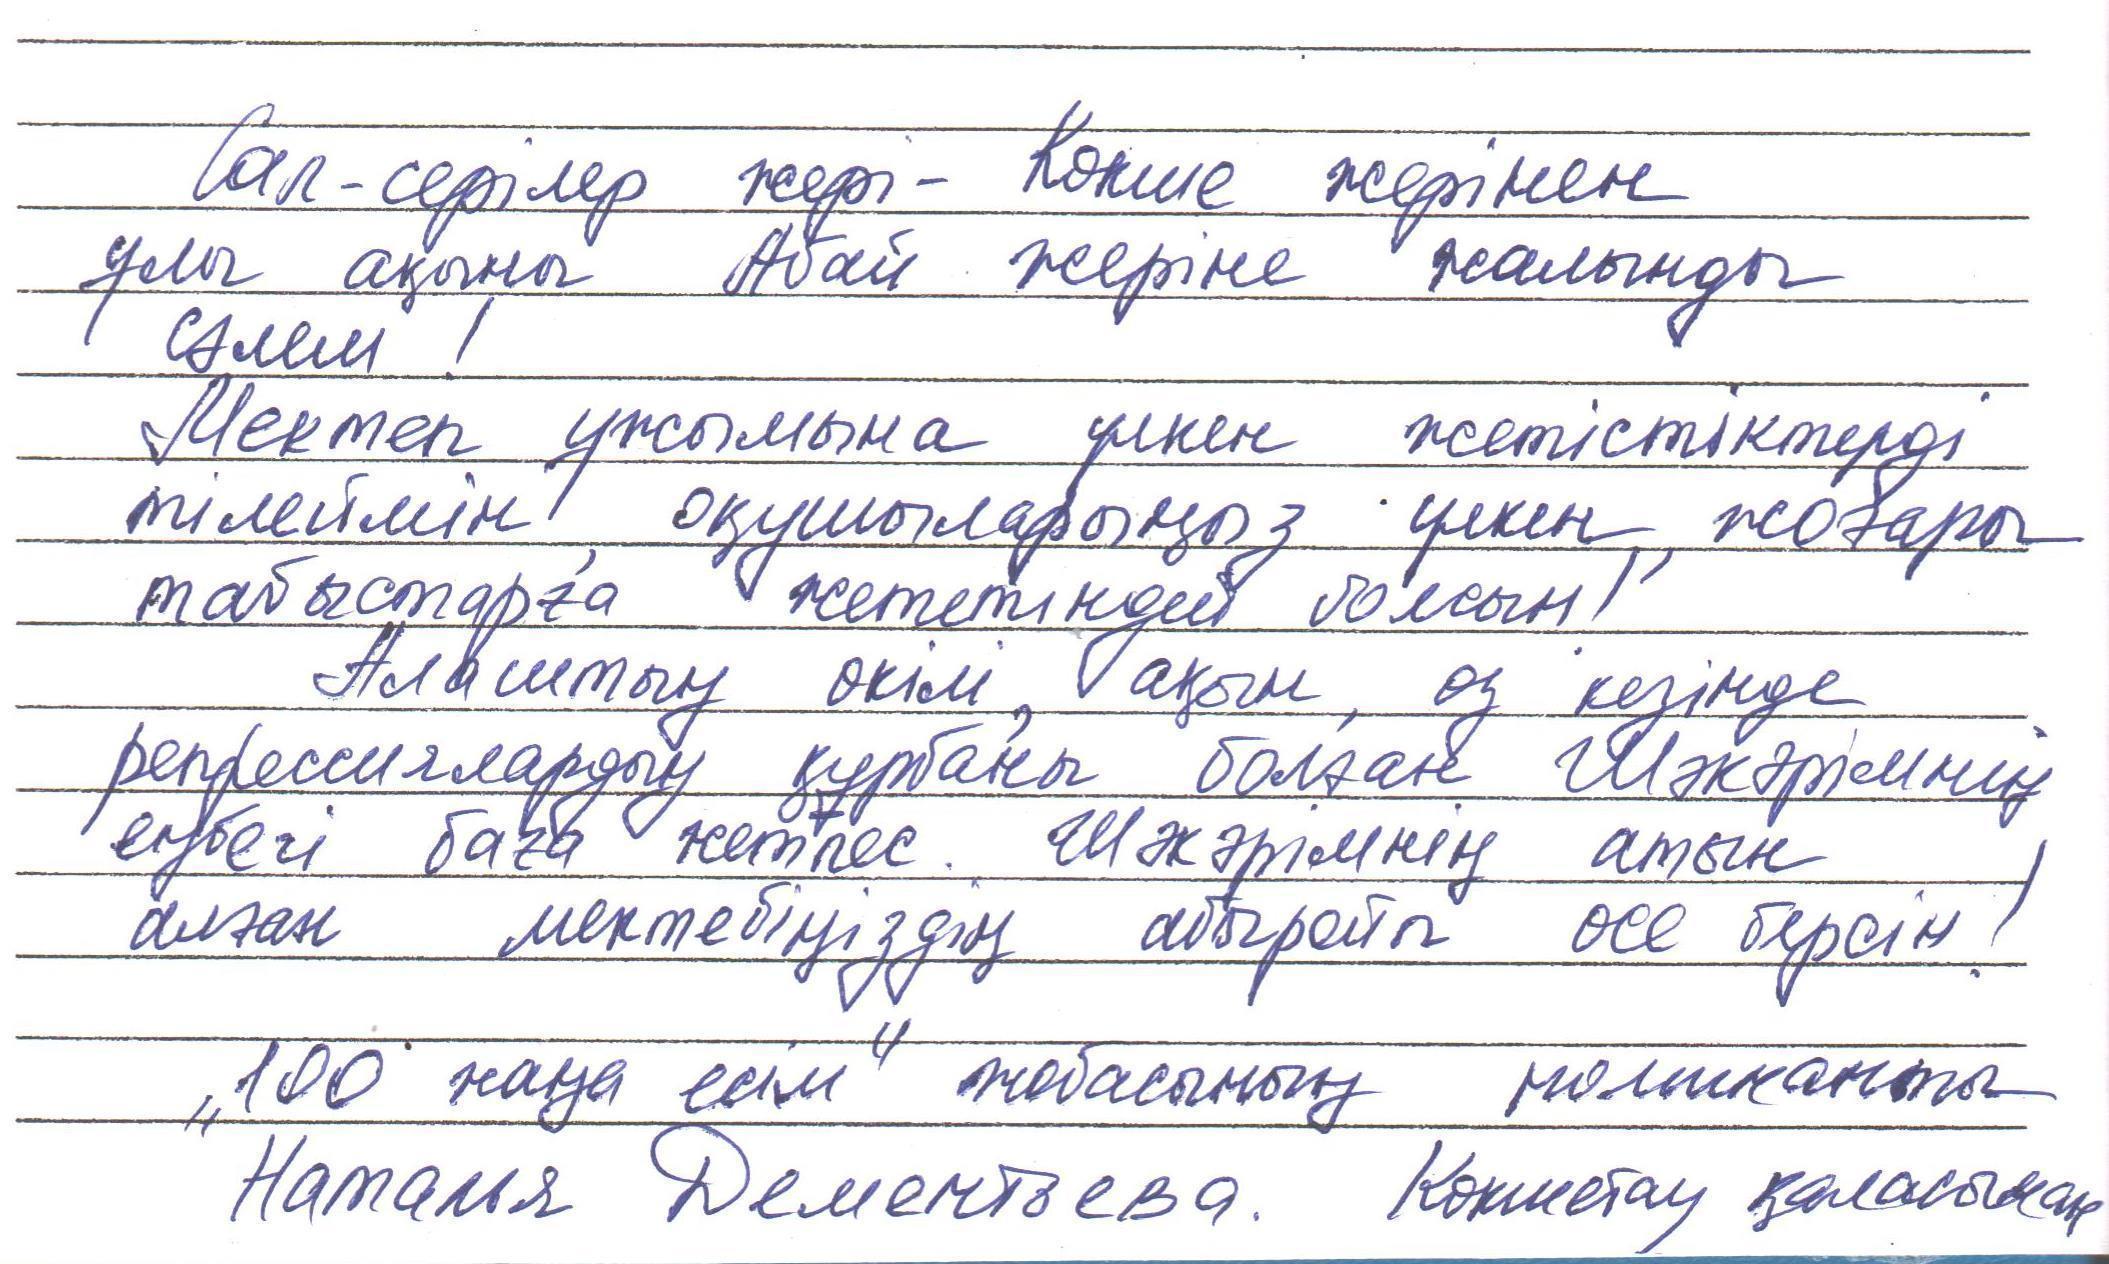 Сал-серілер жері - Көкше жерінен
ұлы ақыны Абай жеріне жалынды
сәлем!
Мектеп ұжымына үлкен жетістіктерді
тілеймін, оқушыларыңыз үлкен, жоғары
табыстарға жететіндей болсын!
Алаштың өкілі, ақын, өз кезінде
репрессиялардың құрбаны болған Шәкәрімнің
еңбегі баға жетпес. Шәкәрімнің атын
алған мектебіңіздің абыройы өсе берсін!
„100 жаңа есім“ жобасының номинанты
Наталья Дементьева. Көкшетау қаласынан